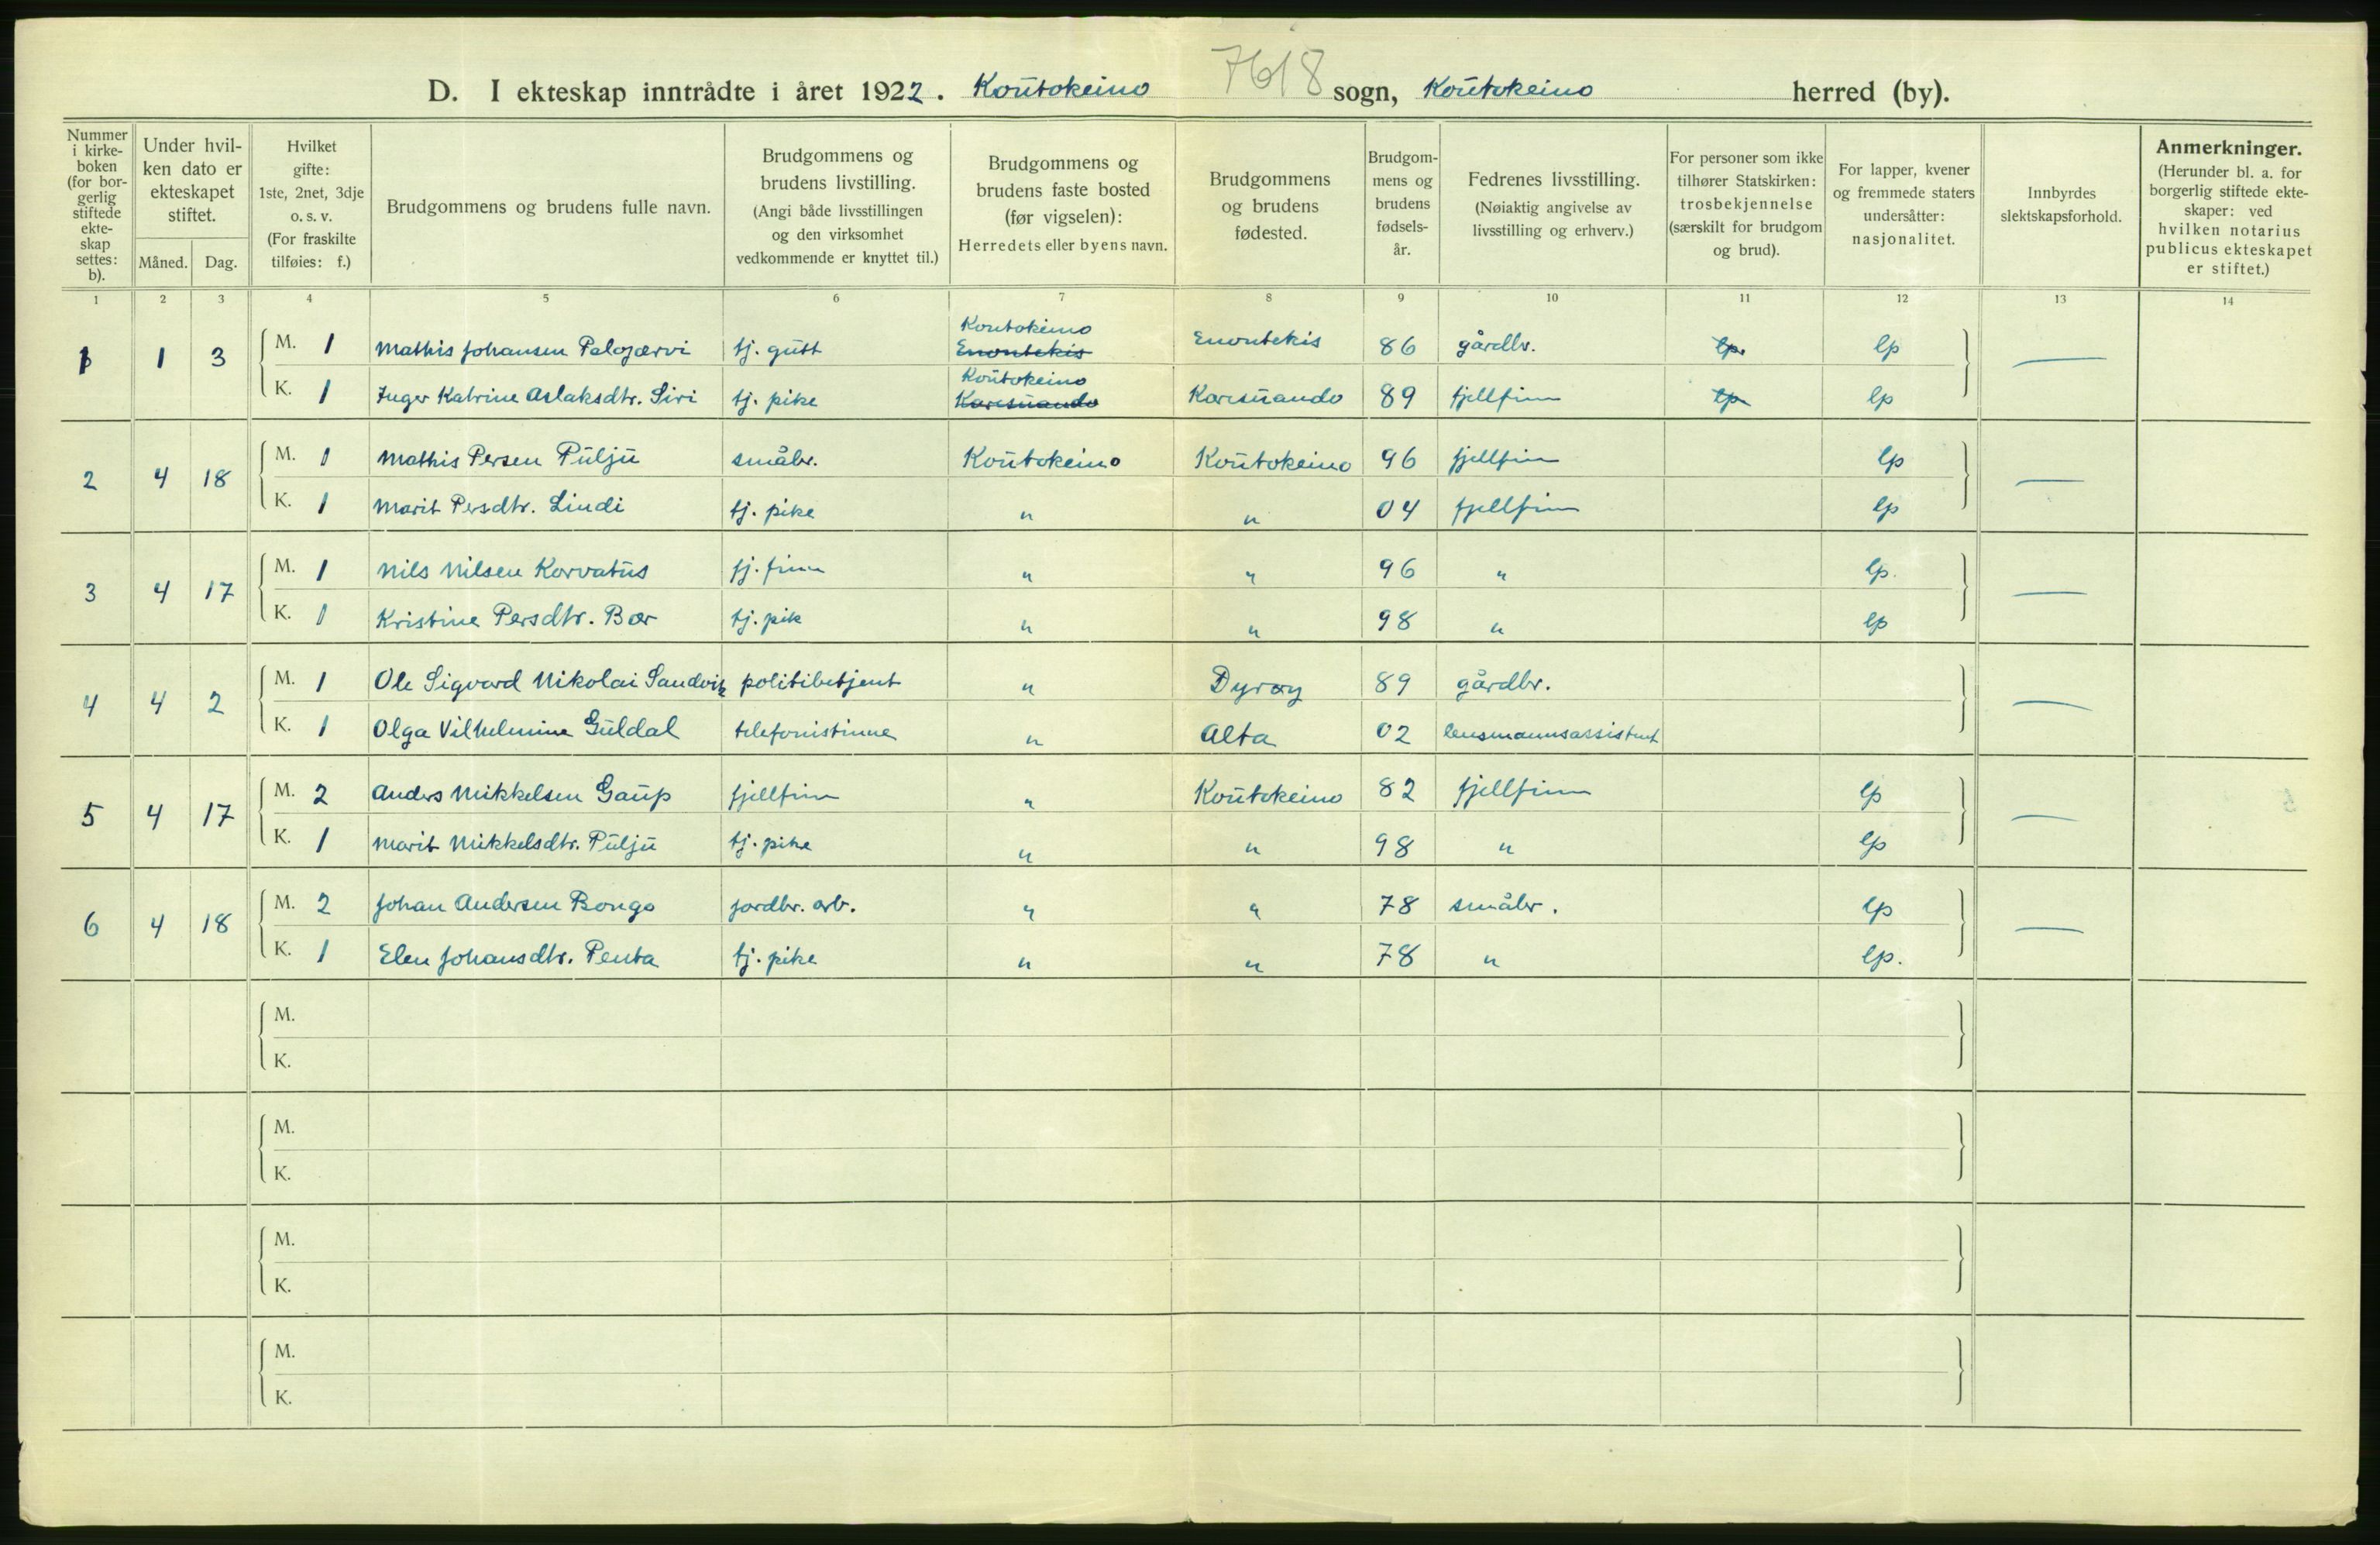 7618
D. I ekteskap inntrådte i året 1922. Koutokeino sogn, Koutokeino herred (by).
Nummer i kirkeboken (for borgerlig stiftede ekteskap settes: b).
Under hvilken dato er ekteskapet stiftet.
Måned. Dag.
Hvilket gifte: 1ste, 2net, 3dje o. s. v. (For fraskilte tilføies: f.)
Brudgommens og brudens fulle navn.
Brudgommens og brudens livstilling. (Angi både livsstillingen og den virksomhet vedkommende er knyttet til.)
Brudgommens og brudens faste bosted (før vigselen): Herredets eller byens navn.
Brudgommens og brudens fødested.
Brudgommens og brudens fødselsår.
Fedrenes livsstilling. (Nøiaktig angivelse av livsstilling og erhverv.)
For personer som ikke tilhører Statskirken: trosbekjennelse (særskilt for brudgom og brud).
For lapper, kvener og fremmede staters undersåtter: nasjonalitet.
Innbyrdes slektskapsforhold.
Anmerkninger. (Herunder bl. a. for borgerlig stiftede ekteskaper: ved hvilken notarius publicus ekteskapet er stiftet.)
1 2 3 4 5 6 7 8 9 10 11 12 13 14
1 1 3 M. 1 Mathis Johansen Palojærvi tj. gutt Koutokeino Enontekis Enontekis 86 gårdbr. lp. lp
K. 1 Inger Katrine Aslaksdtr. Siri tj. pike Koutokeino Karesuando Karesuando 89 fjellfinn lp lp
2 4 18 M. 1 Mathis Persen Pulju småbr. Koutokeino Koutokeino 96 fjellfinn lp
K. 1 Marit Persdtr. Lindi tj. pike " " 04 fjellfinn lp
3 4 17 M. 1 Nils Nilsen Korvatus fj. finn " " 96 " lp.
K. 1 Kristine Persdtr. Bær tj. pik " " 98 " lp
4 4 2 M. 1 Ole Sigvard Nikolai Sandvik politibetjent " Dyrøy 89 gårdbr.
K. 1 Olga Vilhelmine Guldal telefonistinne " Alta 02 lensmannsassistent
5 4 17 M. 2 Anders Mikkelsen Gaup fjellfinn " Koutokeino 82 fjellfinn lp
K. 1 Marit Mikkelsdtr. Pulju tj. pike " " 98 " lp
6 4 18 M. 2 Johan Andersen Bongo jordbr. arb. " " 78 småbr. lp
K. 1 Elen Johansdtr. Penta tj. pike " " 78 " lp.
M.
K.
M.
K.
M.
K.
M.
K.